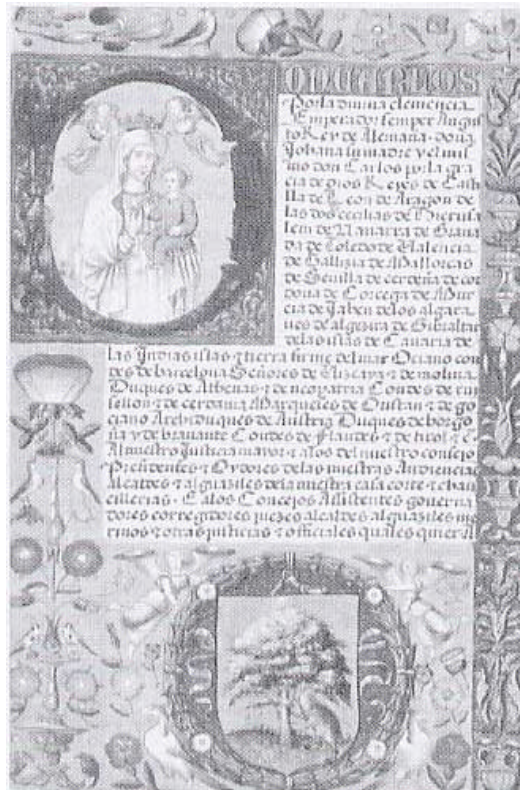 ODCARLOS
Porla divina clemencia
Emperador semper Augus
to Rey de Alemaña. doña
Johana su madre y el mis
mo don Carlos por la gra
cia de dios Reyes de Casti
lla de Leon de Aragon de
las dos cecilias de Hierusa
lem de Navarra de Grana
da de Toledo de Valencia
de Gallizia de Mallorcas
de Sevilla de cerdeña de cor
dova de Corcega de Mur
cia de Jahen de los algarb
ves de algezira de Gibraltar
de las islas de Canaria de
las Indias islas & tierra firme del mar Oceano con
des de barcelona Señores de Vizcaya & de molina
Duques de Athenas & de neopatria Condes de ru
sellon & de cerdania Marqueses de Oristan & de go
ciano Archiduques de Austria Duques de borgo
ña y de bravante Condes de flandes & de tirol & c.
Al nuestro Justicia mayor & a los del nuestro consejo
Presidentes & Oydores de las nuestras Audiencias
Alcaldes & alguaziles de la nuestra casa corte & chan
cillerias. E a los Concejos Assistentes governa
dores corregidores juezes alcaldes alguaziles me
rinos & otras justicias & officiales quales quier